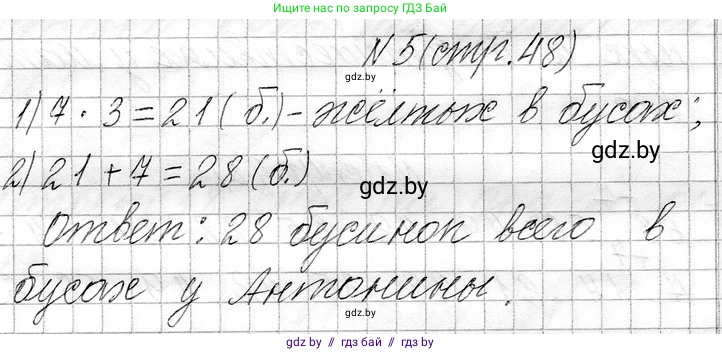 Ищите нас по запросу ГДЗ Бай
N 5 (стр. 48)
gdz.by
1) 7 · 3 = 21 (б.) - жёлтых в бусах;
gdz.by
2) 21 + 7 = 28 (б.)
gdz.by
Ответ: 28 бусинок всего в
бусах у Антонины.
gdz.by
gdz.by // гдз бай // gdz.by